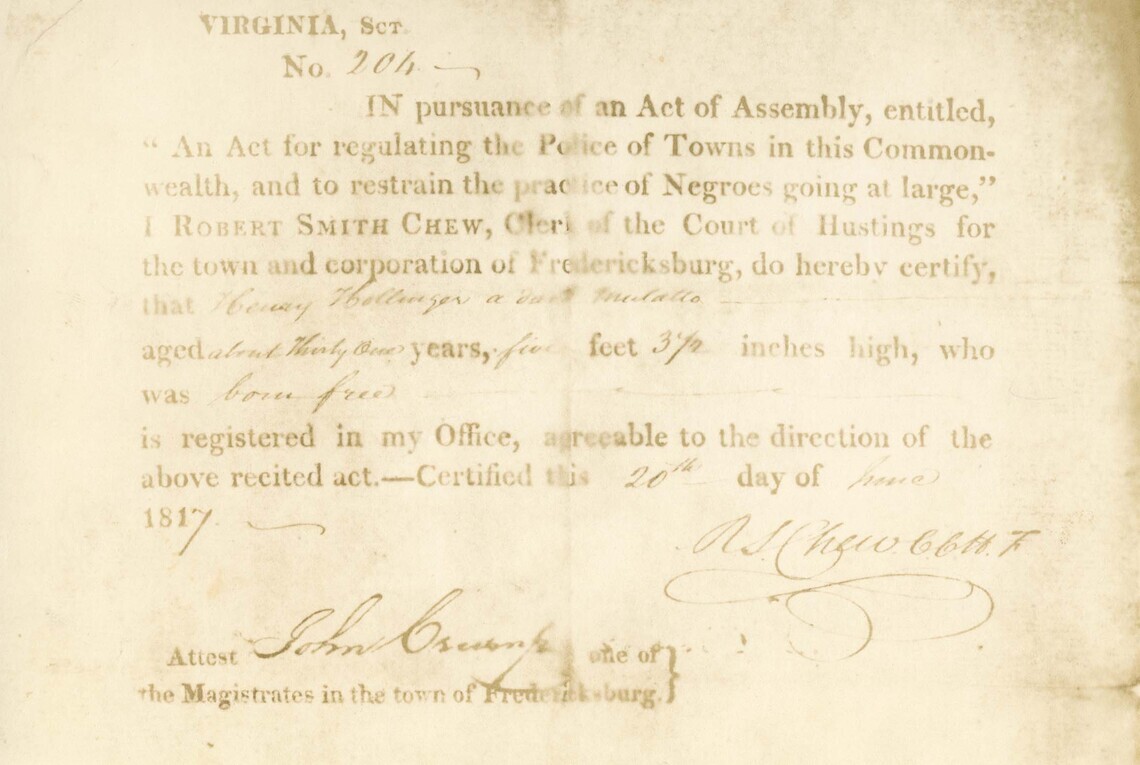 VIRGINIA, SCT.
No. 204
IN pursuance of an Act of Assembly, entitled,
“ An Act for regulating the Police of Towns in this Common-
wealth, and to restrain the practice of Negroes going at large,”
I ROBERT SMITH CHEW, Clerk of the Court of Hustings for
the town and corporation of Fredericksburg, do hereby certify,
that Henry Hollinger a dark mulatto
aged about Thirty One years, five feet 3 1/2 inches high, who
was born free
is registered in my Office, agreeable to the direction of the
above recited act.—Certified this 20th day of June
1817.
R S. Chew C C H. F
Attest John Crump one of
the Magistrates in the town of Fredericksburg.